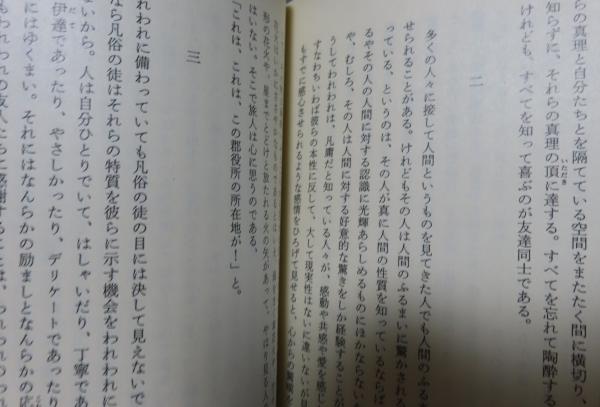 らの真理と自分たちとを隔てている空間をまたたく間に横切り、
知らずに、それらの真理の頂に達する。すべてを忘れて陶酔する
けれども、すべてを知って喜ぶのが友達同士である。
二
多くの人々に接して人間というものを見てきた人でも人間のふる
せられることがある。けれどもその人は人間のふるまいに驚かされる
っている、というのは、その人が真に人間の性質を知っているならば
るやその人の人間に対する認識に光輝あらしめるものにほかならない
や、むしろ、その人は人間に対する好意的な驚きをしか経験することが
うしてわれわれは、凡庸だと知っている人々が、感動や共感や愛を感じ
すなわちいわば彼らの本性に反して、大して現実性はないに違いないが見
もすでに感心させられるような感情をひろげて見せると、心からの驚嘆を
はいない。そこで旅人は心に思うのである。
「これは、これは、この郡役所の所在地が！」と。
三
われわれに備わっていても凡俗の徒の目には決して見えないで
なら凡俗の徒はそれらの特質を彼らに示す機会をわれわれに
ないから。人は自分ひとりでいて、はしゃいだり、丁寧であ
伊達であったり、やさしかったり、デリケートであった
にはゆくまい。それにはなんらかの励ましとなんらかの応
われわれの友人たちに感謝することは、われわれの